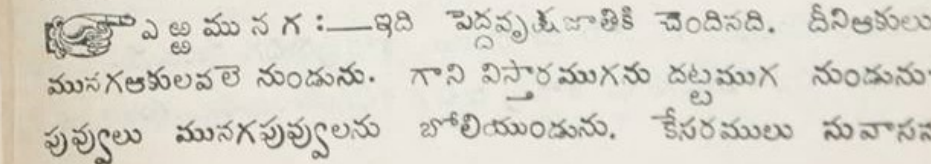 ఎ ఱ్ఱ ము న గ :—ఇది పెద్దవృక్షజాతికి చెందినది. దీనిఆకులు
మునగఆకులవలె నుండును. గాని విస్తారముగను దట్టముగ నుండును
పువ్వులు మునగపువ్వులను బోలియుండును. కేసరములు సువాసన